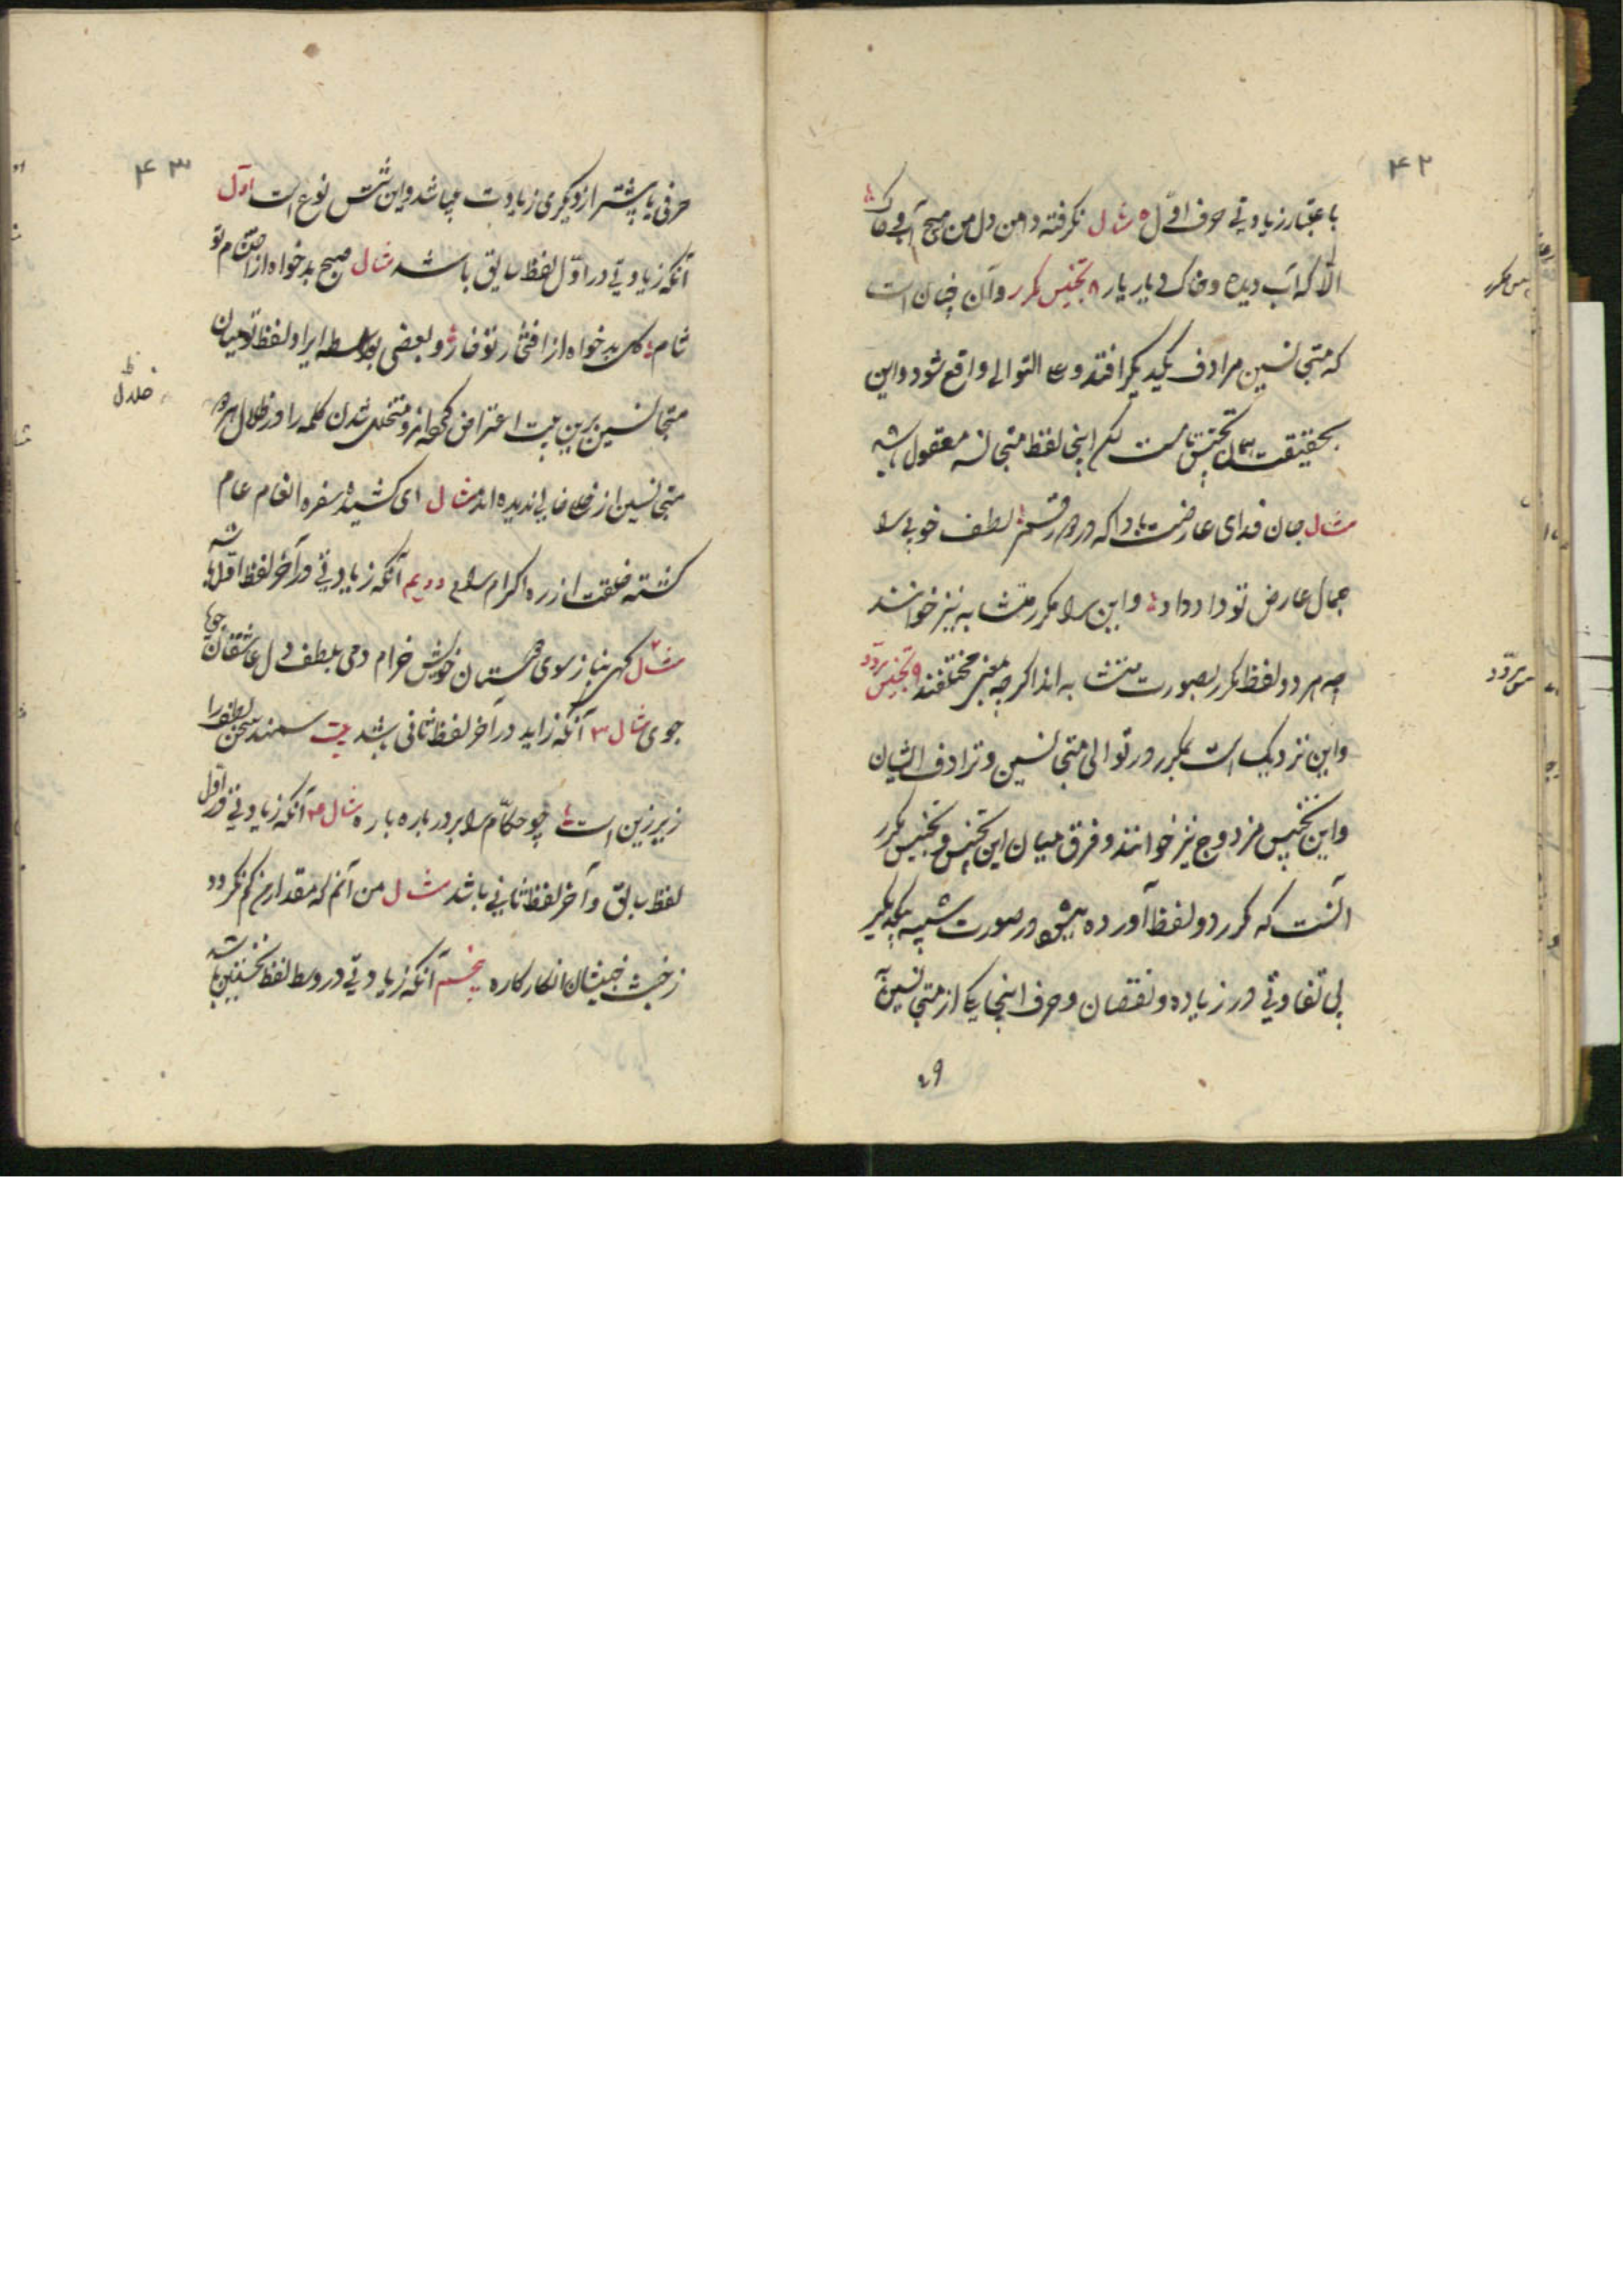 ۴۲
باعتبار زیادتی حرف اوّل مثال نگرفته دامن دل من هیچ آب و خاک
الّا که آب دیده و خاک دیار یار ۸ تجنیس مکرر و آن چنان است
که متجانسین مرادف یکدیگر افتد و علی التوالی واقع شود و این
بحقیقت تجنیس است لیکن اینجا لفظ متجانسه معقول باشد
مثال جان فدای عارضت بادا که در لطف خوبی را
جمال عارض تو داد داد و این را مکرر متشابه نیز خوانند
چه هر دو لفظ مکرر بصورت متشابه اند اگر چه بمعنی مختلفند ۹ تجنیس مردّد
و این نزدیک است بمکرر در توالی متجانسین و ترادف ایشان
و این تجنیس مزدوج نیز خوانند و فرق میان این تجنیس و تجنیس مکرر
آنست که مکرر دو لفظ آورده میشود در صورت شبیه یکدیگر
بی تفاوتی در زیاده و نقصان و حرف اینجا یکی از متجانسین
تجنیس مکرر
مردّد
۴۳
حرفی یا بیشتر از دیگری زیادت میباشد و این شش نوع است اوّل
آنکه زیادتی در اوّل لفظ سابق باشد مثال صبح بدخواه ز احتشام تو
شام گل بدخواه از افتخار تو خار و بعضی بواسطه ایراد لفظ تو میان
متجانسین برین بیت اعتراض کرده‌اند و متخلل شدن کلمه را در خلال
متجانسین از خللی خالی ندیده اند مثال ای کشیده سفره انعام عام
کشته خلقت از ره اکرام رام دویم آنکه زیادتی در آخر لفظ اوّل باشد
مثال گهی بناز سوی بستان خوش خرام دمی بلطف دل عاشقان جویا
جوی مثال ۳ آنکه زاید در آخر لفظ ثانی باشد بیت سمند سخن
زیر زین است چو حکّام را بر در باره باره مثال ۴ آنکه زیادتی در اوّل
لفظ سابق و آخر لفظ ثانی باشد مثال من آنم که مقدار من کم نگردد
ز خبث خبیثان انکار کاره پنجم آنکه زیادتی در وسط لفظ نخستین باشد
خلال